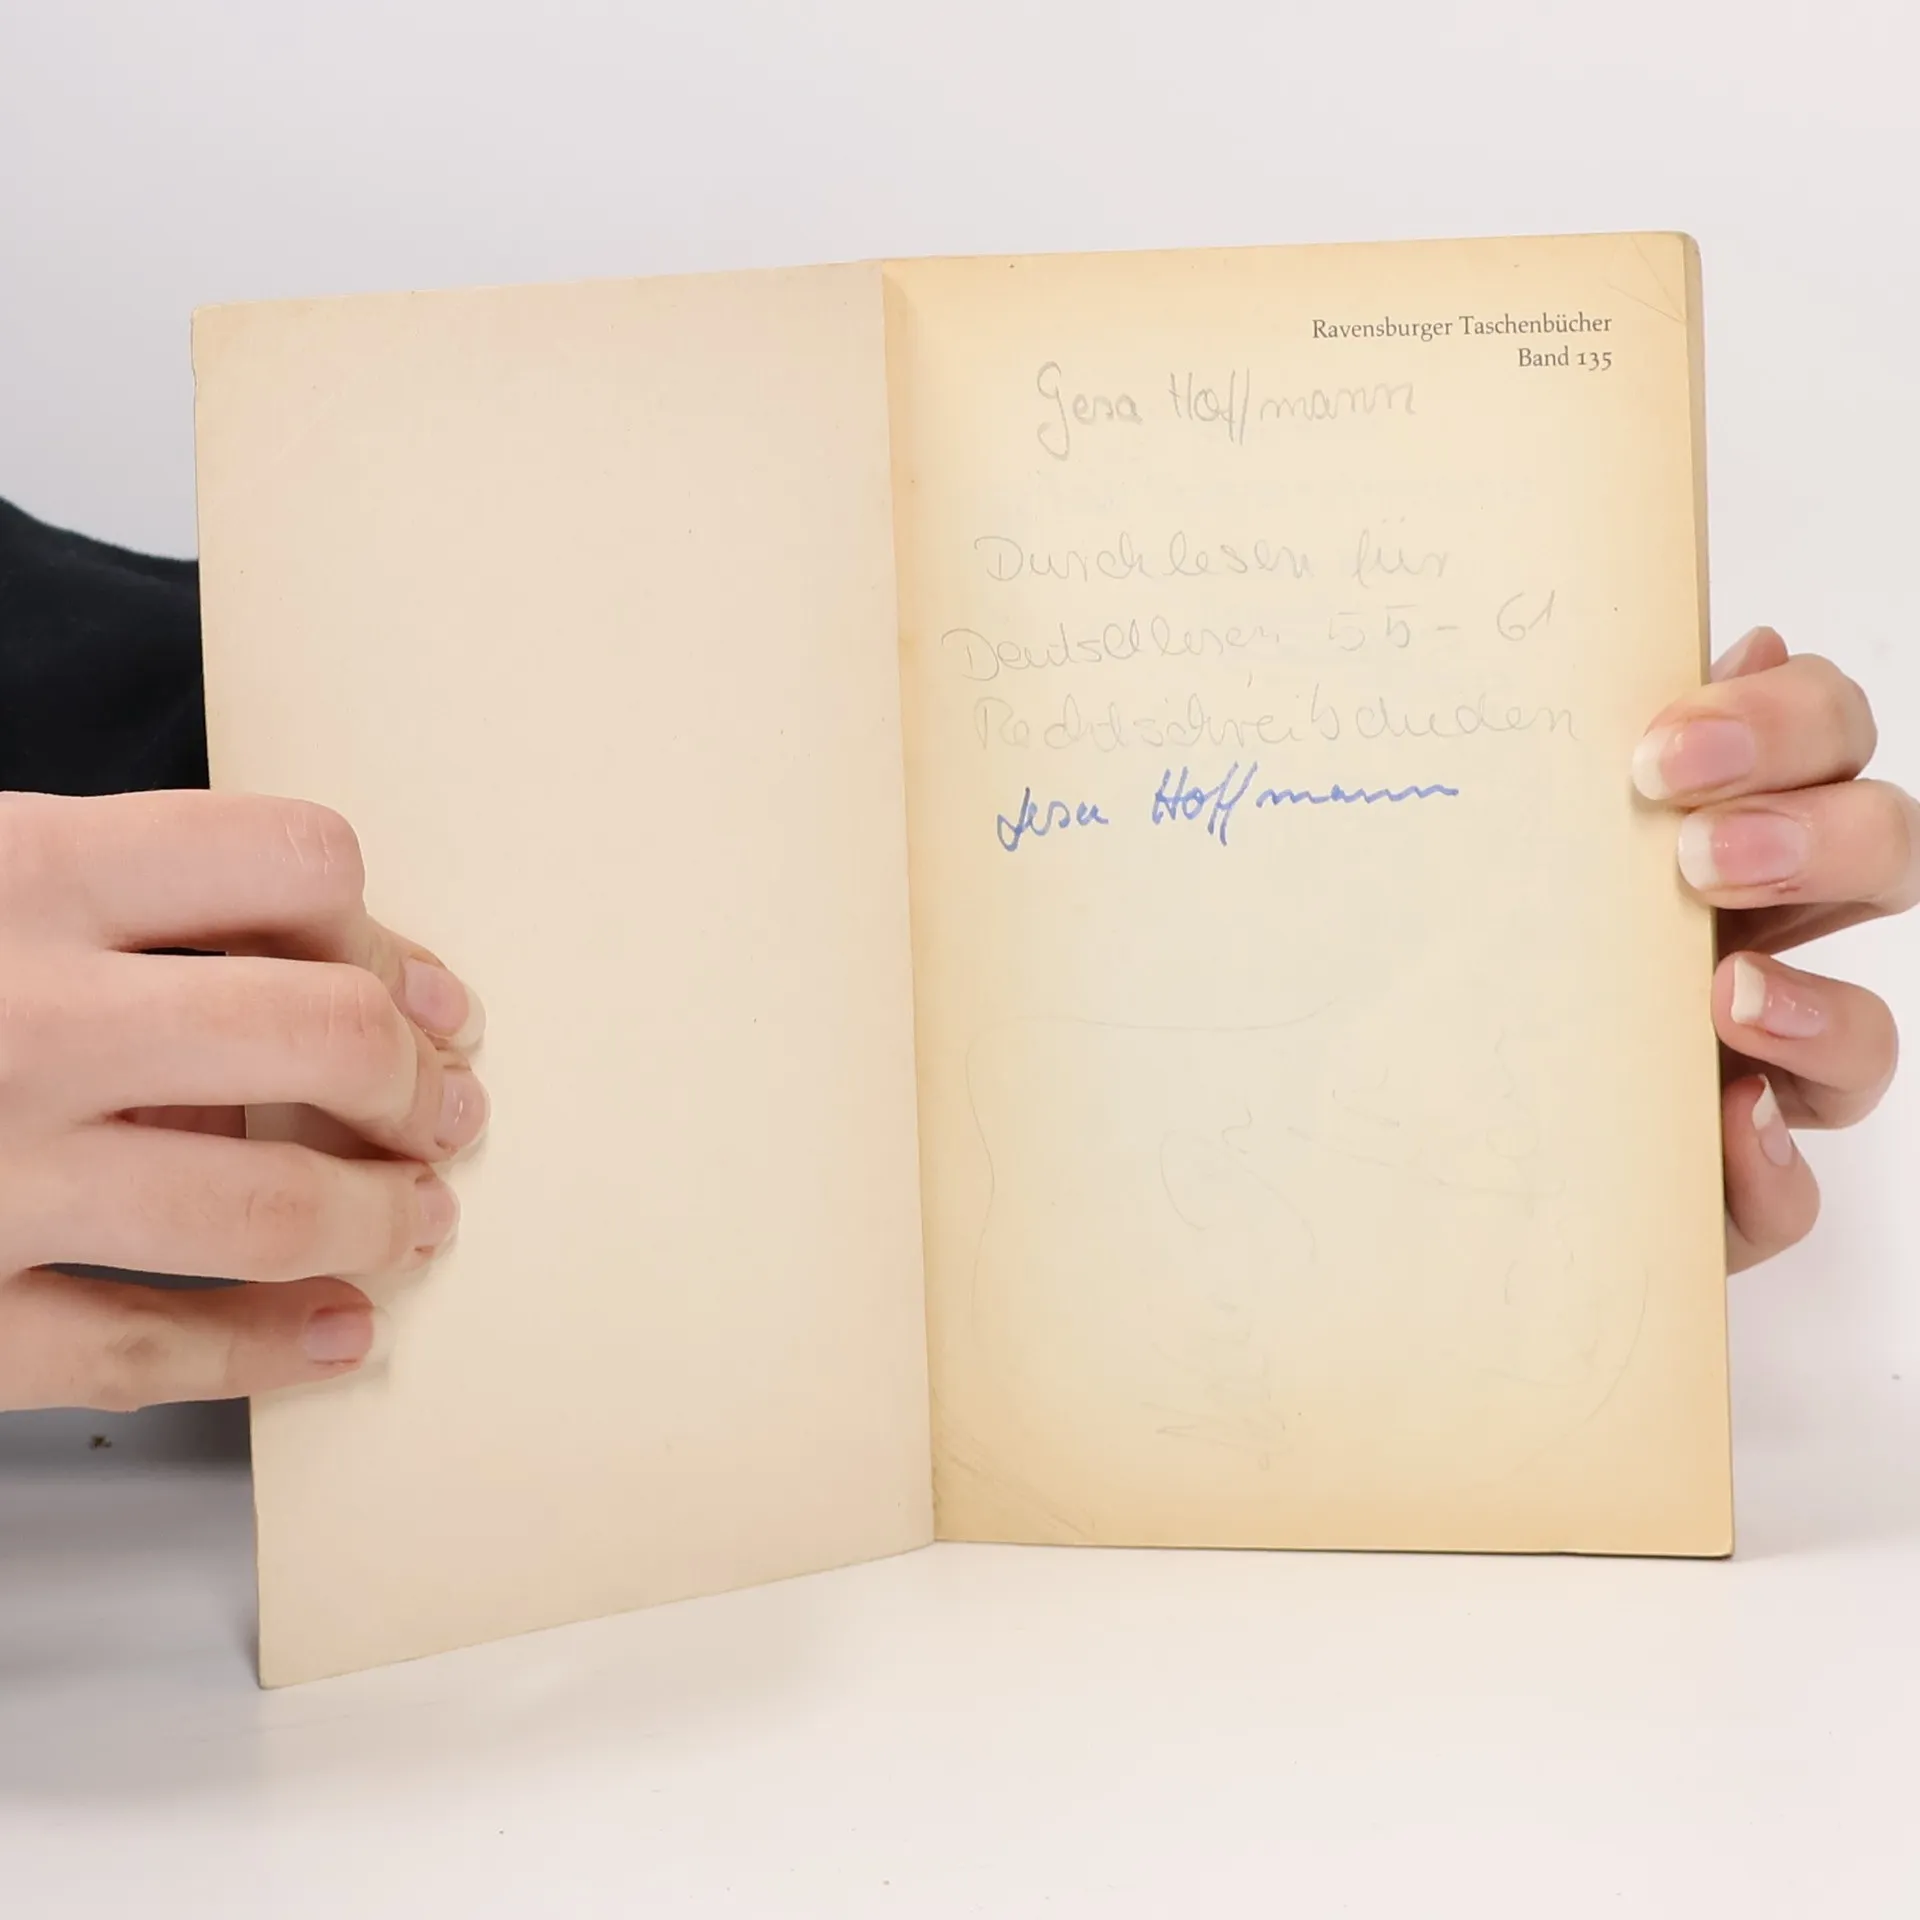 Ravensburger Taschenbücher
Band 135
Gesa Hoffmann
Durchlesen für
Deutschlesen 55 - 61
Rechtschreibduden
Gesa Hoffmann